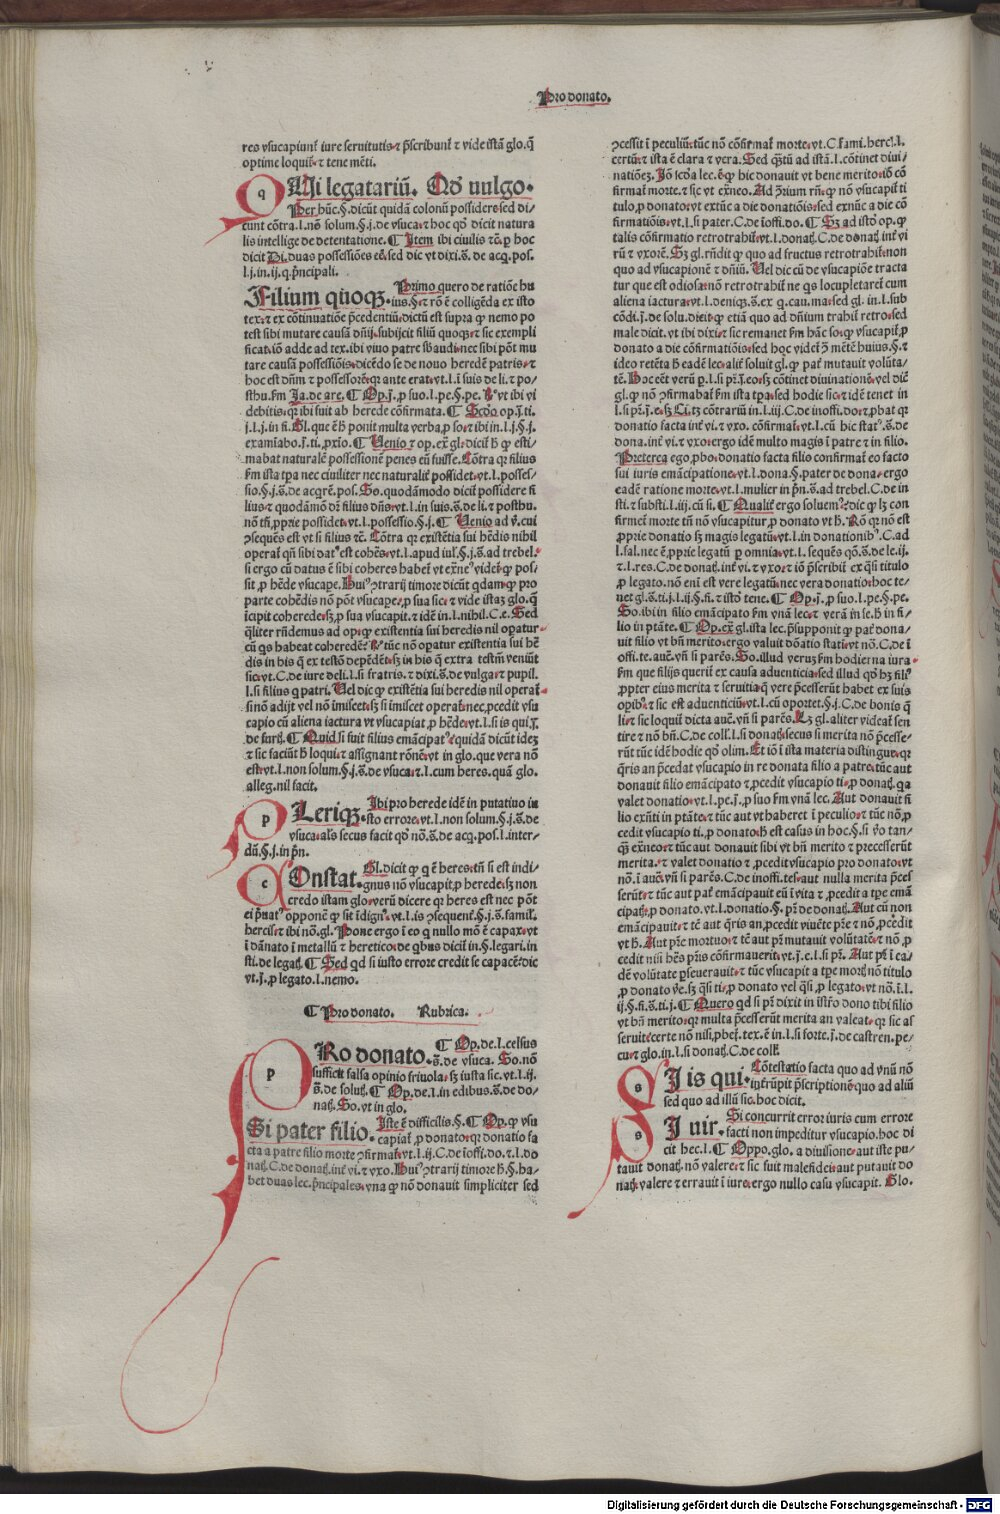 Pro donato.
res vsucapiunt iure seruitutis ⁊ p̄scribunt ⁊ vide istā glo. q̄
optime loquit̄ ⁊ tene mēti.
q
Ui legatariū. Qd̓ uulgo.
Per hūc. §. dicūt quidā colonū possidere sed di/
cunt cōtra. l. nō solum. §. j. de vsuca. ⁊ hoc qd̓ dicit natura
lis intellige de detentatione. ¶ Item ibi ciuilis ⁊c̄. p hoc
dicit Di. duas possessiōes eē. sed dic vt dixi. s̄. de acq. pos.
l. j. in. ij. q. p̄ncipali.
Filium quoqꝫ.
Primo quero de ratiōe hu
ius. §. ⁊ rō ē colligēda ex isto
tex. ⁊ ex cōtinuatiōe p̄cedentiū. dictū est supra qͥ nemo po
test sibi mutare causā dn̄ij. subijcit filiū quoqꝫ. ⁊ sic exempli
ficat. iō adde ad tex. ibi viuo patre sb̓audi. nec sibi pōt mu
tare causā possessiōis. dicēdo se de nouo heredē patris. ⁊
hoc est dn̄m ⁊ possessorē. qr ante erat. vt. l. ī suis de li. ⁊ po/
sthu. fm Ja. de are. ¶ Op. j̄. p suo. l. pe. §. pe. vt ibi vi
debitis. qr ibi suit ab herede cōfirmata. ¶ Scd̓o op. j̄. ti.
mabat naturalē possessionē penes eū fuisse. Cōtra qr filius
fm ista tpa nec ciuiliter nec naturalit̄ possidet. vt. l. posses/
sio. §. j. s̄. de acqrē. pos. So. quodāmodo dicit̄ possidere fi
lius ⁊ quodāmō dr̄ filius dn̄s. vt. l. in suis. s̄. de li. ⁊ posthu.
nō tn̄ pprie possidet. vt. l. possessio. §. j. ¶ Uenio ad v̓. cui
si ergo cū datus ē sibi coheres
sit p hēde vsucape.
parte cohēdis nō pōt vsucape. p sua sic. ⁊ vide istaꝫ glo. q̄
cū qs habeat coheredē
dis in his q̄ ex testō depēdēt. sꝫ in his q̄ extra testm̄ veniūt
sic. vt. C. de iure deli. l. si fratris. ⁊ dixi. s̄. de vulga. ⁊ pupil.
l. si filius q patri. Uel dic qͥ existētia sui heredis nil operat̄
si nō adijt vel nō imiscet. sꝫ si imiscet operat̄. nec pcedit vsu
capio cū aliena iactura vt vsucapiat p hēde. vt. l. si is qui. j̄.
de furt̄. ¶ Quid si suit filius emācipat⁹. quidā dicūt ideꝫ
⁊ sic faciūt h̓ loqui. ⁊ assignant rōnē. vt in glo. que vera nō
est. vt. l. non solum. §. j. s̄. de vsuca. ⁊ l. cum heres. quā glo.
alleg. nil facit.
p
Leriqꝫ.
Ibi pro herede idē in putatiuo iu
sto errore. vt. l. non solum. §. j. s̄. de
vsuca. als̄ secus facit qd̓ nō. s̄. de acq. pos. l. inter/
dū. §. j. in p̄n.
c
Onstat.
Gl. dicit qͥ q ē heres. tn̄ si est indi/
gnus nō vsucapit. p herede. sꝫ non
credo istam glo. verū dicere qr heres est nec pōt
ei priuat̄ opponē qͥ sit idign⁹. vt. l. is ꝯsequent. §. j. s̄. famil.
hercis. ⁊ ibi nō. gl. Pone ergo ī eo q nullo mō ē capax. vt
ī dānato ī metallū ⁊ heretico. de qbus dicit̄ in. §. legari. in
sti. de legat̄. ¶ Sed qd si iusto errore credit se capacē. dic
vt. j̄. p legato. l. nemo.
¶ Pro donato. Rubrica.
p
Ro donato.
¶ Op. de. l. celsus
s̄. de vsuca. So. nō
sufficit falsa opinio friuola. sꝫ iusta sic. vt. l. ij.
s̄. de solut̄. ¶ Op. de. l. in edibus. s̄. de do/
nat̄. So. vt in glo.
Si pater filio.
Iste ē difficilis. §. ¶ Op. qͥ vsu
capiat p donato. qr donatio fa
cta a patre filio morte ꝯfirmat̄. vt. l. ij. C. de īoffi. do. ⁊. l. do
nat̄. C. de donat̄. int̄ vi. ⁊ vxo. Hui⁹ ꝯtrarij timore h̓. §. ha/
bet duas lec. p̄ncipales. vna qͥ nō donauit simpliciter sed
ꝯcessit ī peculiū. tūc nō cōfirmat̄ morte. vt. C. fami. herci. l.
certū. ⁊ ista ē clara ⁊ vera. Sed qͣtū ad istā. l. cōtinet diui/
nationeꝫ. Jō scd̓a lec. ē qͥ hic donauit vt bene merito. iō cō
firmat̄ morte. ⁊ sic vt extraneo. Ad ꝯrium rn̄. qͥ nō vsucapit̄ ti
tulo. p donato. vt extūc a die donatiōis. sed exnūc a die cō
firmatiōis. vt. l. si pater. C. de ioffi. do. ¶ Sꝫ ad istō op. qͥ
talis cōfirmatio retrotrahit̄. vt. l. donat̄. C. de donat̄. int̄ vi
rū ⁊ vxorē. Sꝫ gl. rn̄dit qͥ quo ad fructus retrotrahit̄. non
quo ad vsucapionē ⁊ dn̄iū. Uel dic cū de vsucapiōe tracta
tur que est odiosa. nō retrotrahit̄ ne qs locupletaret̄ cum
aliena iactura. vt. l. deniqꝫ. s̄. ex q. cau. ma. sed gl. in. l. sub
cōdi. j̄. de solu. dicit qͥ etiā quo ad dn̄ium trahit̄ retro. sed
male dicit. vt ibi dixi. ⁊ sic remanet fm hāc so. qͥ vsucapit̄ p
donato a die cōfirmatiōis. sed hoc videt̄ ꝯ mētē huius. §. ⁊
ideo retēta h̓ eadē lec. alit̄ soluit gl. qͥ pat̄ mutauit volūta/
tē. Hoc eēt verū p. l. si pr̄. j̄. eo. sꝫ cōtinet diuinationē. vel dic
gl. qͥ nō ꝯfirmabat̄ fm ista tpa. sed hodie sic. ⁊ idē tenet in
l. si pr̄. j̄. e. sꝫ Ci. tꝫ cōtrariū in. l. iij. C. de inoffi. do. ⁊ pbat qͥ
donatio facta int̄ vi. ⁊ vxo. cōfirmat̄. vt. l. cū hic stat⁹. s̄. de
dona. int̄ vi. ⁊ vxo. ergo idē multo magis ī patre ⁊ in filio.
Preterea ego pbo. donatio facta filio confirmat̄ eo facto
sui iuris emācipatione. vt. l. dona. §. pater de dona. ergo
eadē ratione morte. vt. l. mulier in p̄n. s̄. ad trebel. C. de in
sti. ⁊ substi. l. iij. cū si. ¶ Qualit̄ ergo soluem⁹. dic qͥ lꝫ con
firmet̄ morte tn̄ nō vsucapitur p donato vt h̓. Rō qr nō est
pprie donatio sꝫ magis legatū. vt. l. in donationib⁹. C. ad
l. fal. nec ē pprie legatū p omnia. vt. l. sequēs qō. s̄. de le. ij.
⁊. l. res. C. de donat̄. int̄. vi. ⁊ vxo. ⁊ iō p̄scribit̄ ex qͣsi titulo
p legato. nō eni est vere legatū. nec vera donatio. hoc te/
net gl. s̄. ti. j. l. ij. §. fi. ⁊ istō tene. ¶ Op. j̄. p suo. l. pe. §. pe.
So. ibi in filio emācipato fm vnā lec. ⁊ verā in se. h̓ in fi/
lio in ptāte. ¶ Op. extra gl. ista lec. p̄supponit qͥ pat̄ dona/
uit filio vt bn̄ merito. ergo valuit donatio stati. vt nō. C. de ī
offi. te. aut̄. vn̄ si parēs. So. illud veruꝫ fm hodierna iura
fm que filijs querit̄ ex causa aduenticia. sed illud qd̓ hꝫ fili⁹
ppter eius merita ⁊ seruitia q̄ vere p̄cesserūt habet ex suis
opib⁹. ⁊ sic est aduenticiū. vt. l. cū oportet. §. j. C. de bonis q̄
li. ⁊ sic loquit̄ dicta aut̄. vn̄ si parēs. Lꝫ gl. aliter videat̄ sen
tire ⁊ nō bn̄. C. de coll. l. si donat̄. secus si merita nō p̄cesse/
rūt tūc idē hodie qd̓ olim. Et iō ī ista materia distingue. qr
qͣris an p̄cedat vsucapio in re donata filio a patre. tūc aut
donauit filio emācipato ⁊ pcedit vsucapio ti. p donat̄. qa
valet donatio. vt. l. pe. j̄. p suo fm vnā lec. Aut donauit fi
lio exn̄ti in ptāte. ⁊ tūc aut vt haberet ī peculio. ⁊ tūc nō p
cedit vsucapio ti. p donato. h̓ est casus in hoc. §. si vo̓ tan/
qͣꝫ extraneo. ⁊ tūc aut donauit sibi vt bn̄ merito ⁊ precesserūt
merita. ⁊ valet donatio ⁊ pcedit vsucapio pro donato. vt
nō. ī aut̄. vn̄ si parēs. C. de inoffi. tes. aut nulla merita p̄ces
serūt. ⁊ tūc aut pat̄ emācipauit eū ī vita ⁊ pcedit a tpe emā
cipat̄. p donato. vt. l. donatio. §. pr̄. de donat̄. Aut cū non
emācipauit. ⁊ tc̄ aut qͣris an pcedit viuēte pr̄e ⁊ nō pcedit
vt h̓. Aut pr̄e mortuo. ⁊ tc̄ aut pr̄ mutauit volūtatē. ⁊ nō p
cedit nisi hēs pr̄is cōfirmauerit. vt. j̄. e. l. si pr̄. Aut pr̄ ī ea/
dē volūtate pseuerauit. ⁊ tūc vsucapit a tpe mort̄ nō titulo
p donato ve̓. sꝫ qͣsi ti. p donato vel qͣsi p legato. vt nō. ī. l.
ij. §. fi. s̄. ti. j. ¶ Quero qd si pr̄ dixit in istr̄o dono tibi filio
vt bn̄ merito. qr multa p̄cesserūt merita an valeat. qr sic as
seruit. certe nō nisi pbet̄. tex. ē in. l. si forte. j̄. de castren. pe/
cu. ⁊ glo. in. l. si donat̄. C. de coll.
s
I is qui.
Cōtestatio facta quo ad vnū nō
int̄rūpit p̄scriptionē quo ad aliū
sed quo ad illū sic. hoc dicit.
s
I uir.
Si concurrit error iuris cum errore
facti non impeditur vsucapio. hoc di
cit hec. l. ¶ Oppo. glo. a diuisione. aut iste pu/
tauit donat̄. nō valere. ⁊ sic suit malefidei. aut putauit do
nat̄. valere ⁊ errauit ī iure. ergo nullo casu vsucapit. Glo.
Digitalisierung gefördert durch die Deutsche Forschungsgemeinschaft - DFG